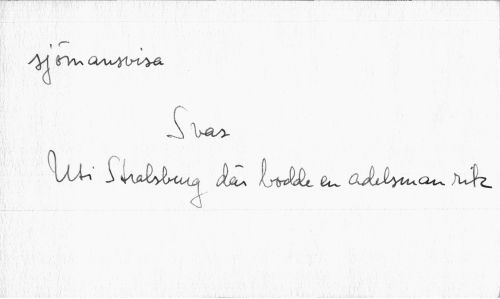 sjömansvisa
Svar
Uti Stralsberg där bodde en adelsman rik